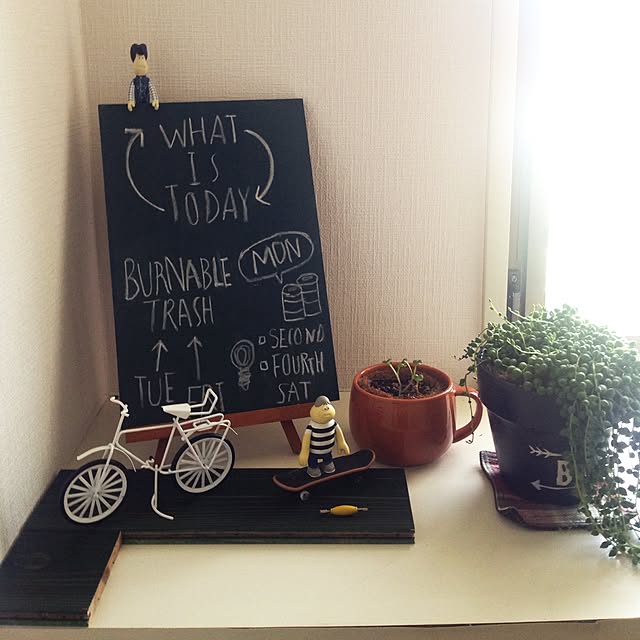 WHAT
IS
TODAY
BURNABLE
TRASH
TUE FRI
MON
SECOND
FOURTH
SAT
B